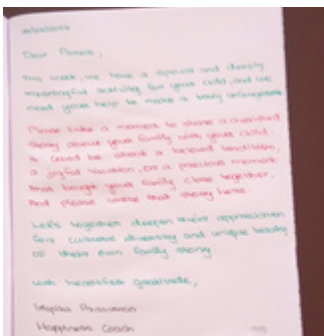 Dear Parent,
This week, we have a special and deeply
meaningful activity for your child, and we
need your help to make it truly unforgettable
Please take a moment to share a cherished
story about your family with your child.
It could be about a beloved tradition,
a joyful vacation, or a precious moment
that brought your family close together.
And please write that story here.
Let's together deepen their appreciation
for cultural diversity and unique beauty
of their own family story.
With heartfelt gratitude,
Happiness Coach